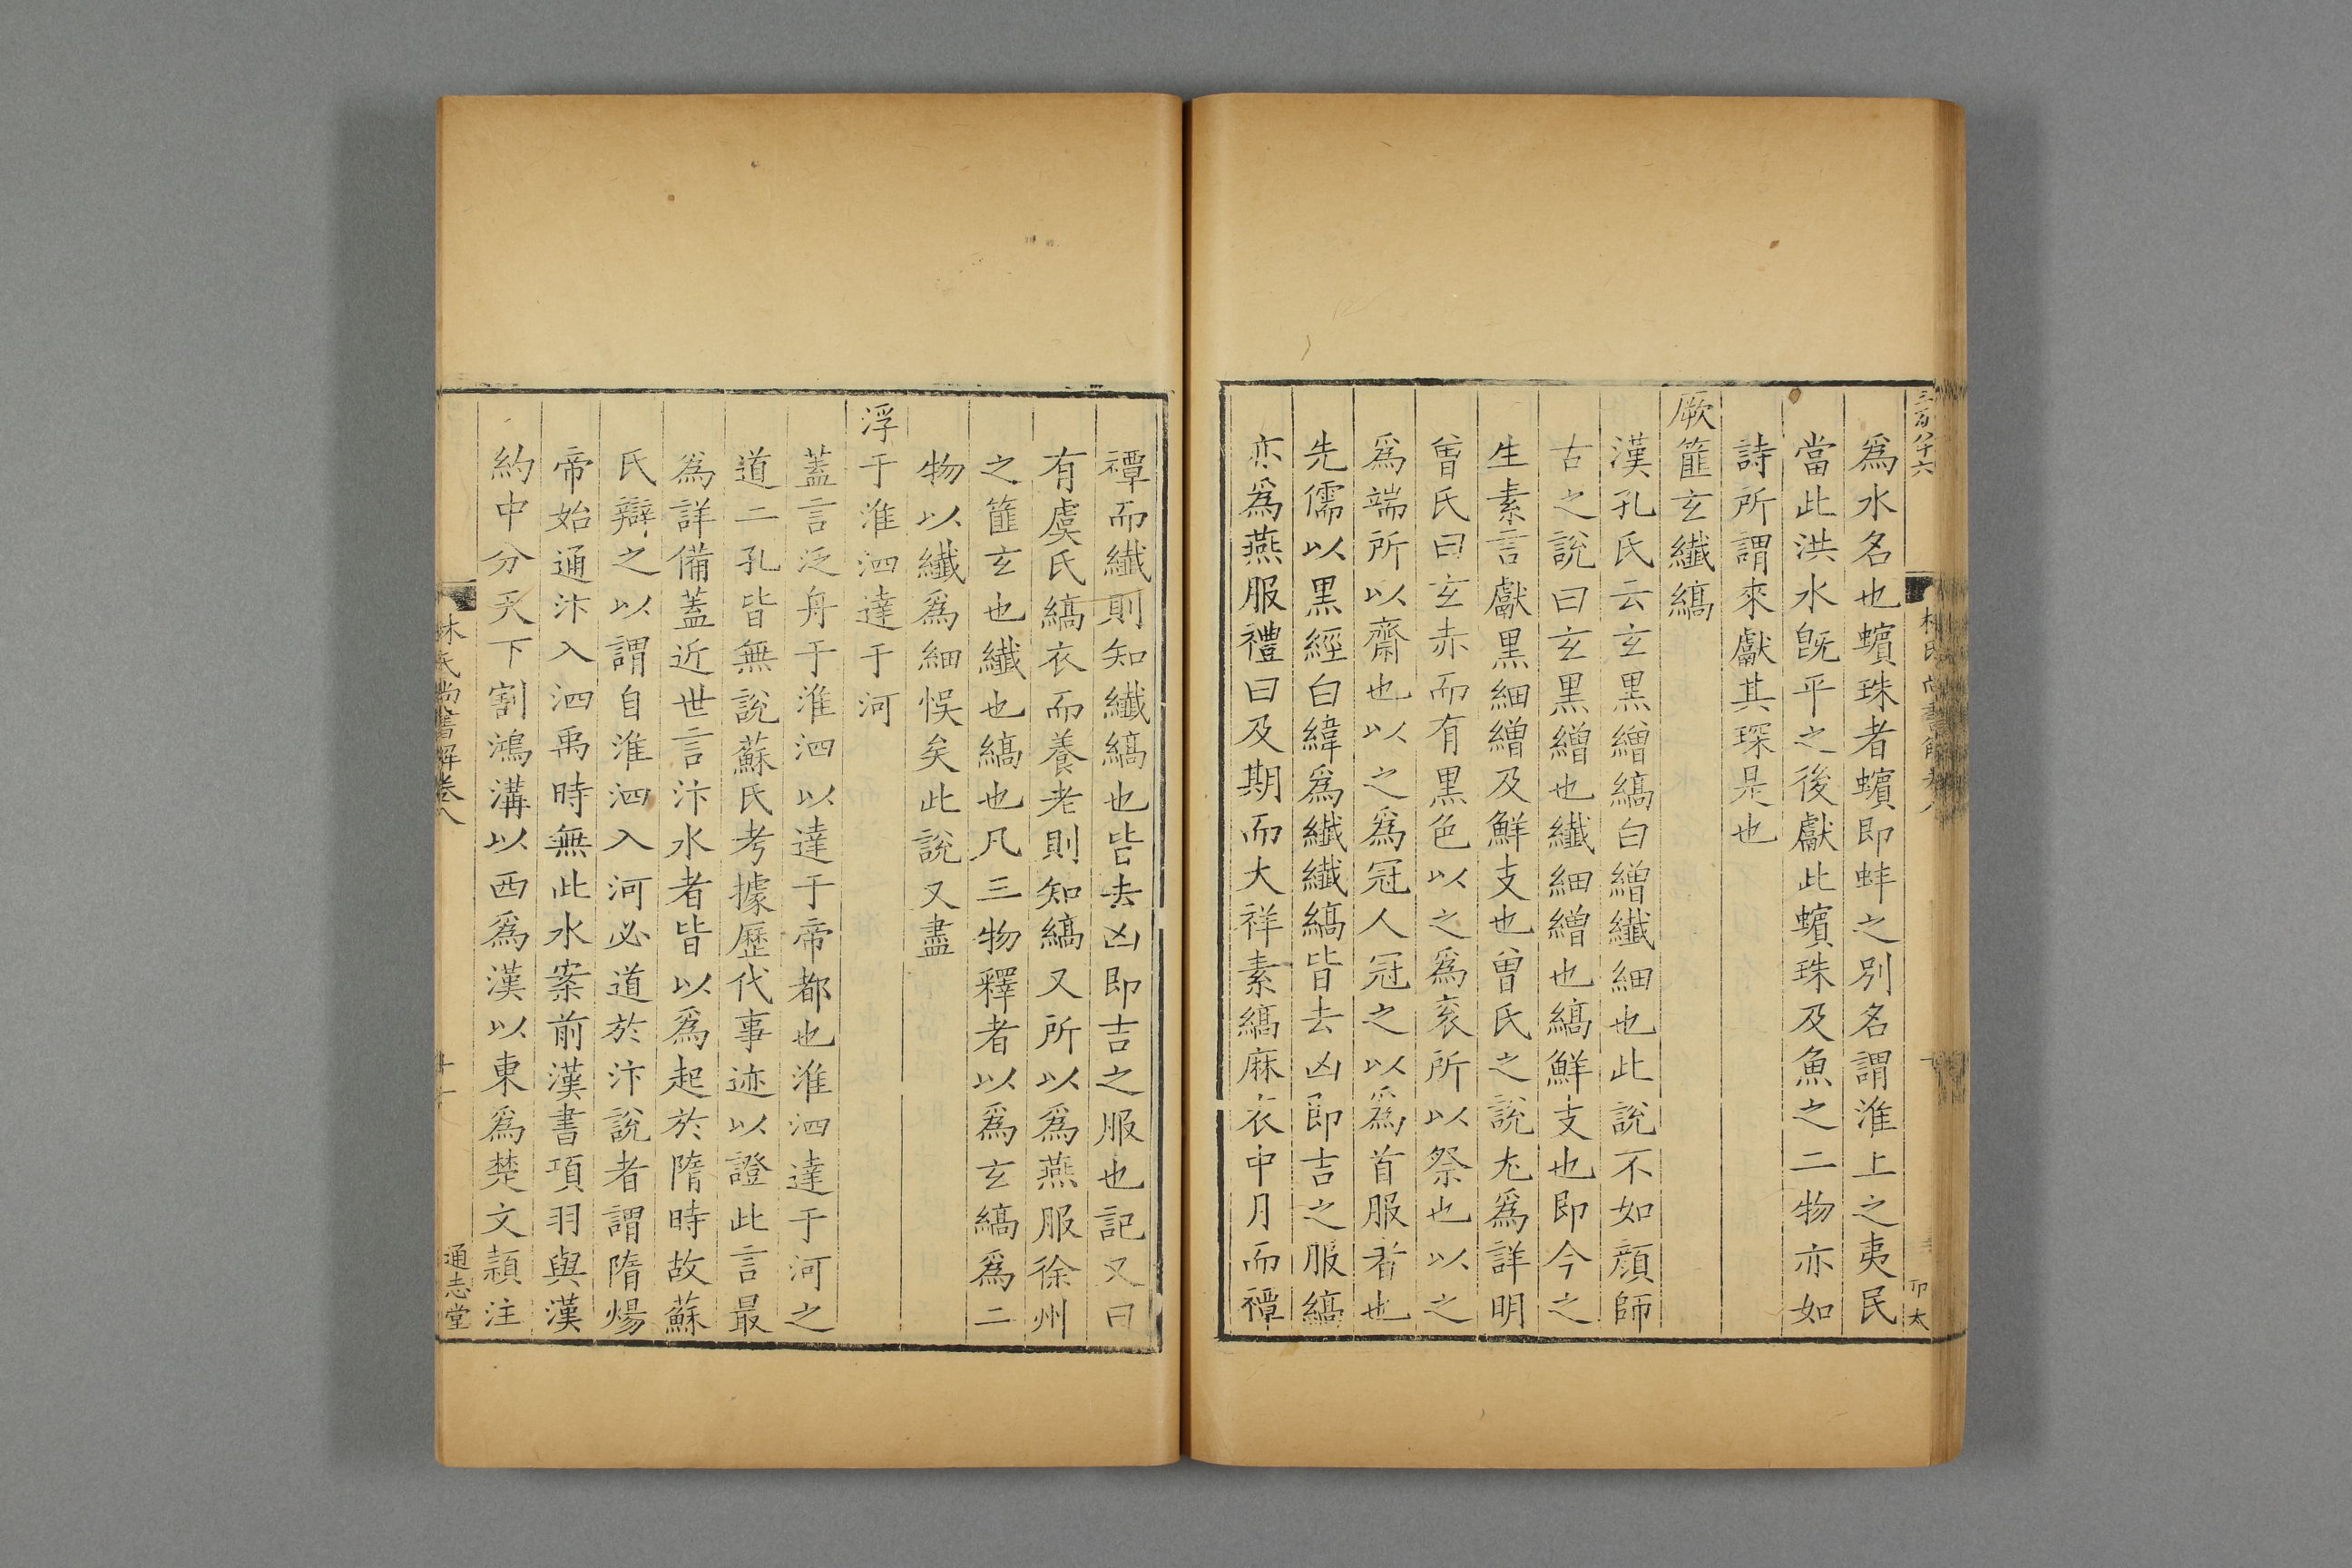 三百八十六
爲水名也蠙珠者蠙即蚌之別名謂淮上之夷民
當此洪水旣平之後獻此蠙珠及魚之二物亦如
詩所謂來獻其琛是也
厥篚玄纖縞
漢孔氏云玄黑繒縞白繒纖細也此說不如顔師
古之說曰玄黑繒也纖細繒也縞鮮支也即今之
生素言獻黑細繒及鮮支也曾氏之說尤爲詳明
曾氏曰玄赤而有黑色以之爲衮所以祭也以之
爲端所以齋也以之爲冠人冠之以爲首服者也
先儒以黑經白緯爲纖纖縞皆去凶即吉之服縞
亦爲燕服禮曰及期而大祥素縞麻衣中月而禫
禫而纖則知纖縞也皆去凶即吉之服也記又曰
有虞氏縞衣而養老則知縞又所以爲燕服徐州
之篚玄也纖也縞也凡三物釋者以爲玄縞爲二
物以纖爲細悞矣此說又盡
浮于淮泗達于河
蓋言泛舟于淮泗以達于帝都也淮泗達于河之
道二孔皆無說蘇氏考據歷代事迹以證此言最
爲詳備蓋近世言汴水者皆以爲起於隋時故蘇
氏辯之以謂自淮泗入河必道於汴說者謂隋煬
帝始通汴入泗禹時無此水案前漢書項羽與漢
約中分天下割鴻溝以西爲漢以東爲楚文頴注
林氏尚書解卷八
通志堂